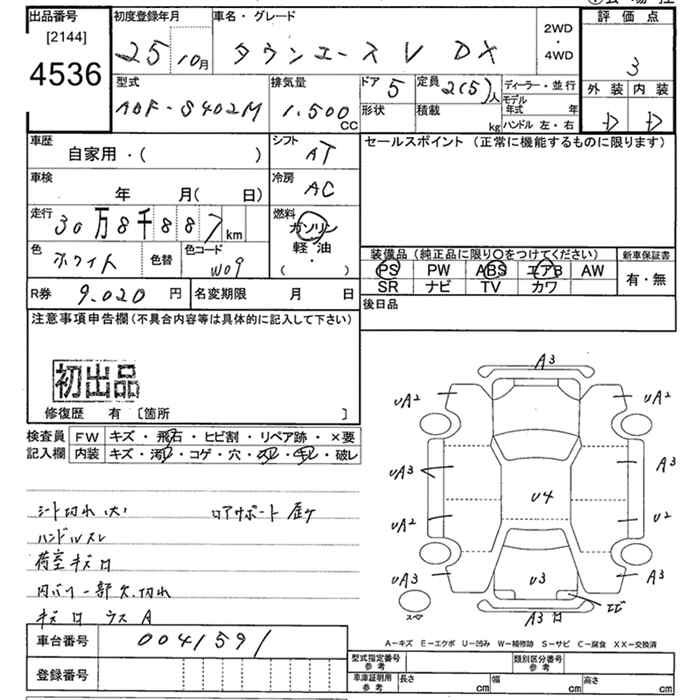 出品番号
[2144]
4536
初度登録年月
25 10月
車名・グレード
タウンエースV DX
2WD
・
4WD
評価点
3
外装 内装
D D
型式
ADF-S402M
排気量
1.500
CC
ドア 5
定員 2(5)人
形状
積載
kg
ディーラー・並行
モデル年式 年
ハンドル 左・右
車歴
自家用・( )
シフト AT
セールスポイント (正常に機能するものに限ります)
車検
年 月( 日)
冷房 AC
走行 30万8千887km
燃料
ガソリン
軽・油
( ・ )
色 ホワイト
色替
色コード
W09
装備品(純正品に限り○をつけてください)
PS PW ABS エアB AW
SR ナビ TV カワ
新車保証書
有・無
R券 9.020 円
名変期限 月 日
後日品
注意事項申告欄(不具合内容等は具体的に記入して下さい)
初出品
修復歴 有 [箇所 ]
検査員
記入欄
FW キズ・飛石・ヒビ割・リペア跡・×要
内装 キズ・汚レ・コゲ・穴・スレ・キレ・破レ
シート切れ(大) ロアサポート 歪ケ
ハンドルスレ
荷室キズ
内バリ一部欠.切れ
ウス A
A3
UA2 UA2
UA3 A3
U4
UA2 U2
UA3 U3 A3
スペア
A3
A-キズ E-エクボ U-凹み W-補修跡 S-サビ C-腐食 XX-交換済
車台番号 0041591
登録番号
型式指定番号
参考
類別区分番号
参考
車庫証明用
参考
長さ cm 幅 cm 高さ cm